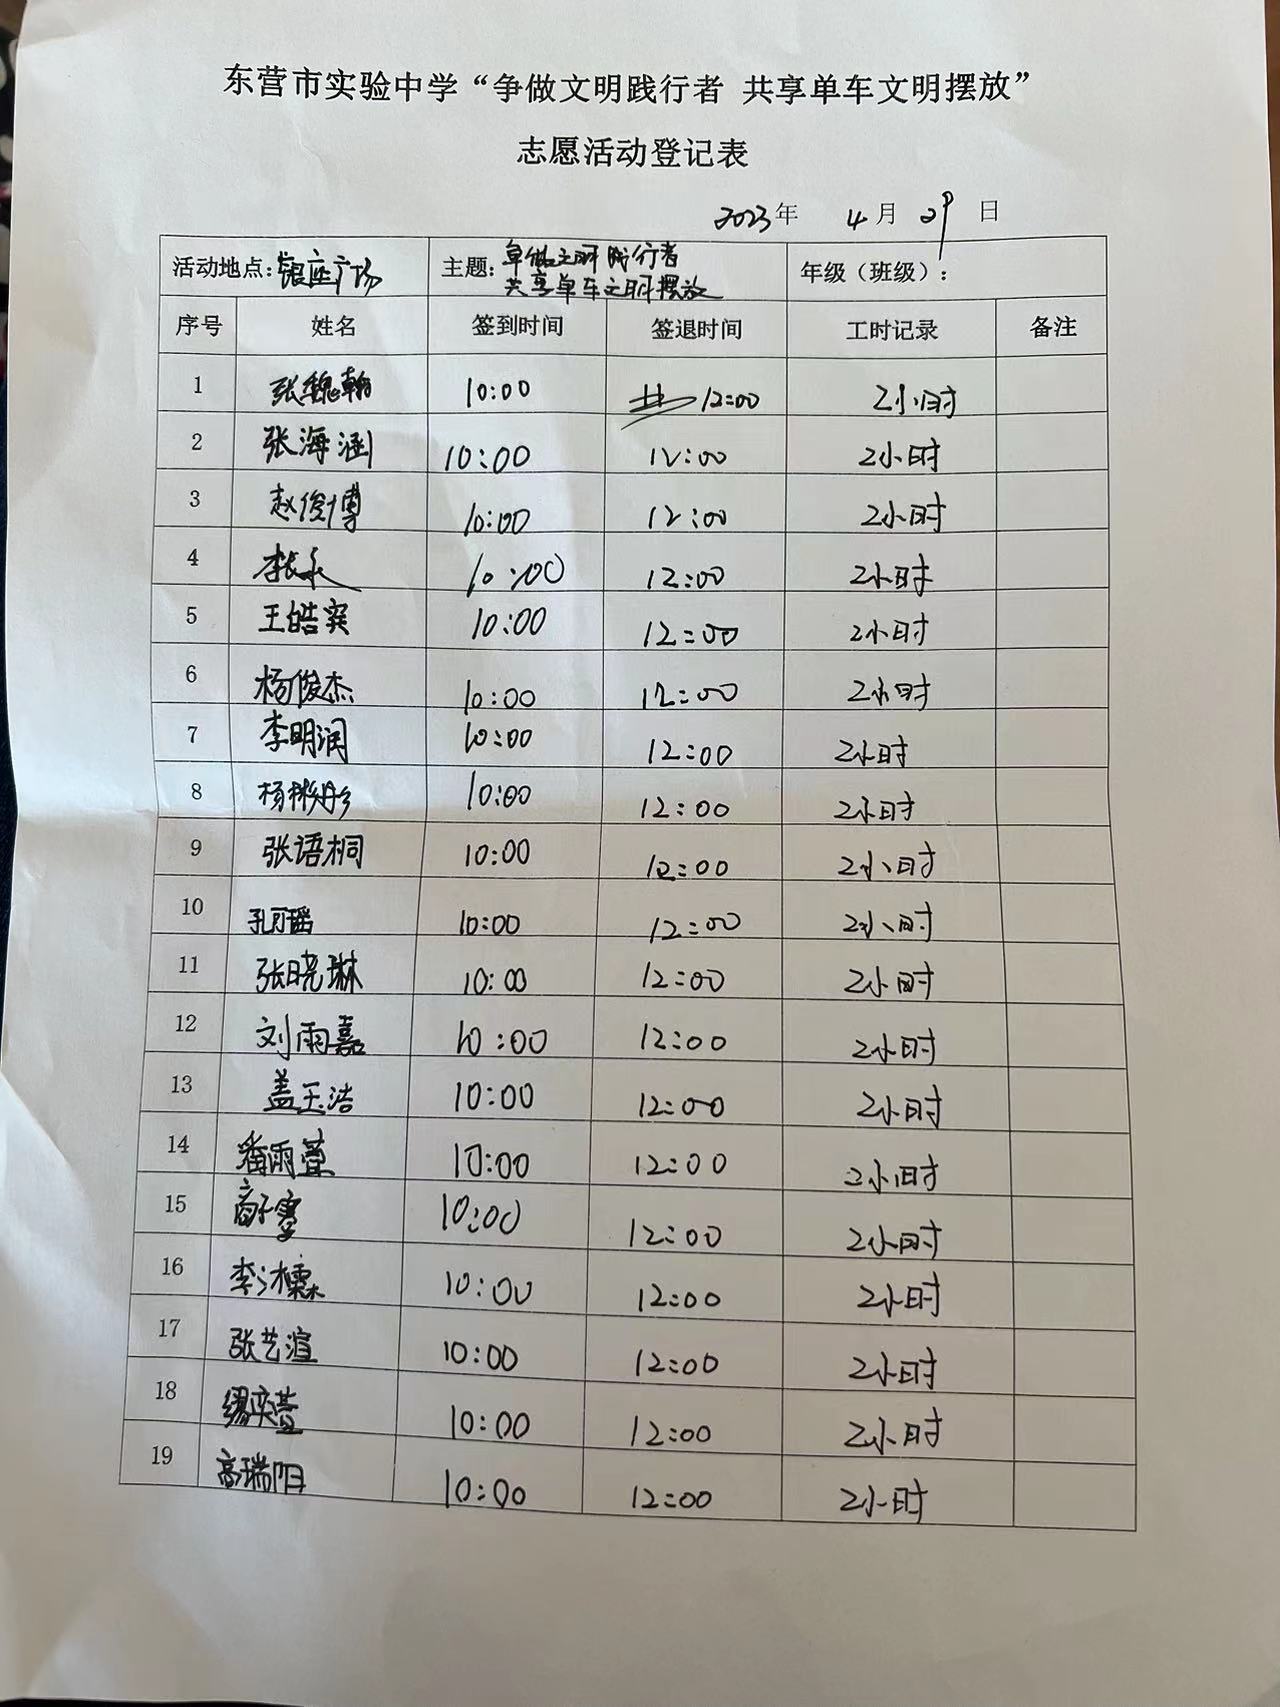 东营市实验中学“争做文明践行者 共享单车文明摆放”
志愿活动登记表
2023年 4月29日
活动地点：银座广场 主题：争做文明践行者 年级（班级）：
共享单车文明摆放
序号 姓名 签到时间 签退时间 工时记录 备注
1 张魏翰 10:00 12:00 2小时
2 张海涵 10:00 12:00 2小时
3 赵俊博 10:00 12:00 2小时
4 10:00 12:00 2小时
5 王皓奕 10:00 12:00 2小时
6 杨俊杰 10:00 12:00 2小时
7 李明润 10:00 12:00 2小时
8 杨彬彤 10:00 12:00 2小时
9 张语桐 10:00 12:00 2小时
10 孔可瑶 10:00 12:00 2小时
11 张晓琳 10:00 12:00 2小时
12 刘雨嘉 10:00 12:00 2小时
13 盖玉洁 10:00 12:00 2小时
14 潘雨萱 10:00 12:00 2小时
15 高子雯 10:00 12:00 2小时
16 10:00 12:00 2小时
17 张艺渲 10:00 12:00 2小时
18 缪奕萱 10:00 12:00 2小时
19 高瑞阳 10:00 12:00 2小时